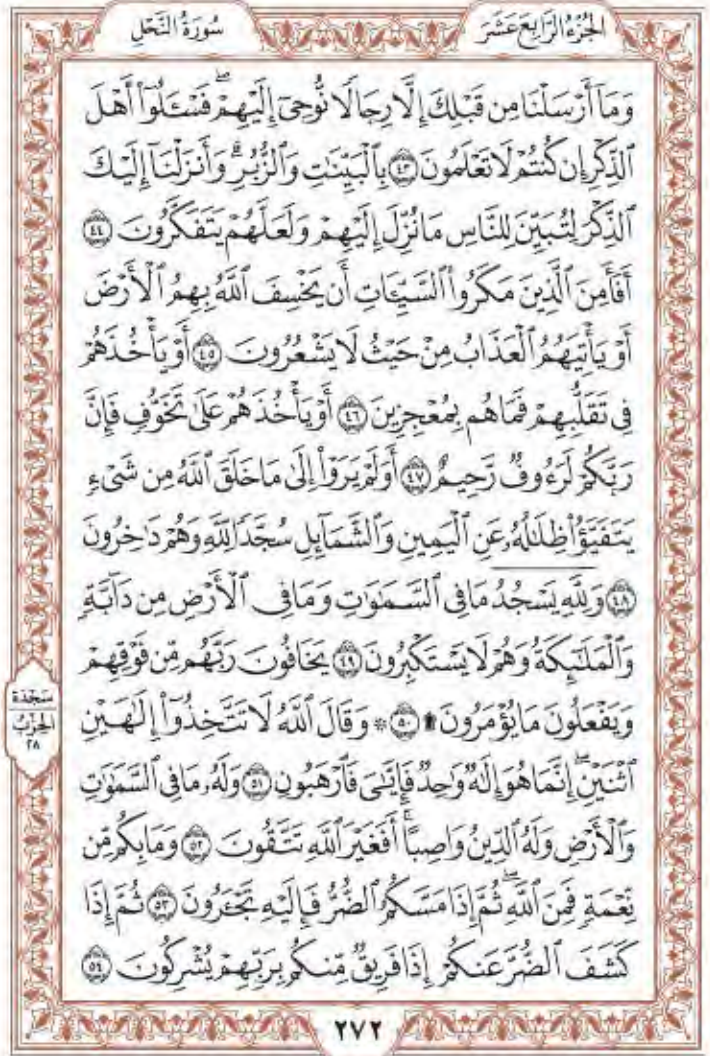 الجُزْءُ الرَّابِعَ عَشَرَ
سُورَةُ النَّحْلِ
وَمَآ أَرْسَلْنَا مِن قَبْلِكَ إِلَّا رِجَالًا نُّوحِىٓ إِلَيْهِمْ ۖ فَسْـَٔلُوٓا۟ أَهْلَ
ٱلذِّكْرِ إِن كُنتُمْ لَا تَعْلَمُونَ ۝٤٣ بِٱلْبَيِّنَـٰتِ وَٱلزُّبُرِ ۗ وَأَنزَلْنَآ إِلَيْكَ
ٱلذِّكْرَ لِتُبَيِّنَ لِلنَّاسِ مَا نُزِّلَ إِلَيْهِمْ وَلَعَلَّهُمْ يَتَفَكَّرُونَ ۝٤٤
أَفَأَمِنَ ٱلَّذِينَ مَكَرُوا۟ ٱلسَّيِّـَٔاتِ أَن يَخْسِفَ ٱللَّهُ بِهِمُ ٱلْأَرْضَ
أَوْ يَأْتِيَهُمُ ٱلْعَذَابُ مِنْ حَيْثُ لَا يَشْعُرُونَ ۝٤٥ أَوْ يَأْخُذَهُمْ
فِى تَقَلُّبِهِمْ فَمَا هُم بِمُعْجِزِينَ ۝٤٦ أَوْ يَأْخُذَهُمْ عَلَىٰ تَخَوُّفٍ فَإِنَّ
رَبَّكُمْ لَرَءُوفٌ رَّحِيمٌ ۝٤٧ أَوَلَمْ يَرَوْا۟ إِلَىٰ مَا خَلَقَ ٱللَّهُ مِن شَىْءٍ
يَتَفَيَّؤُا۟ ظِلَـٰلُهُۥ عَنِ ٱلْيَمِينِ وَٱلشَّمَآئِلِ سُجَّدًا لِّلَّهِ وَهُمْ دَٰخِرُونَ
۝٤٨ وَلِلَّهِ يَسْجُدُ مَا فِى ٱلسَّمَـٰوَٰتِ وَمَا فِى ٱلْأَرْضِ مِن دَآبَّةٍ
وَٱلْمَلَـٰٓئِكَةُ وَهُمْ لَا يَسْتَكْبِرُونَ ۝٤٩ يَخَافُونَ رَبَّهُم مِّن فَوْقِهِمْ
وَيَفْعَلُونَ مَا يُؤْمَرُونَ ۩ ۝٥٠ ۞ وَقَالَ ٱللَّهُ لَا تَتَّخِذُوٓا۟ إِلَـٰهَيْنِ
ٱثْنَيْنِ ۖ إِنَّمَا هُوَ إِلَـٰهٌ وَٰحِدٌ ۖ فَإِيَّـٰىَ فَٱرْهَبُونِ ۝٥١ وَلَهُۥ مَا فِى ٱلسَّمَـٰوَٰتِ
وَٱلْأَرْضِ وَلَهُ ٱلدِّينُ وَاصِبًا ۚ أَفَغَيْرَ ٱللَّهِ تَتَّقُونَ ۝٥٢ وَمَا بِكُم مِّن
نِّعْمَةٍ فَمِنَ ٱللَّهِ ۖ ثُمَّ إِذَا مَسَّكُمُ ٱلضُّرُّ فَإِلَيْهِ تَجْـَٔرُونَ ۝٥٣ ثُمَّ إِذَا
كَشَفَ ٱلضُّرَّ عَنكُمْ إِذَا فَرِيقٌ مِّنكُم بِرَبِّهِمْ يُشْرِكُونَ ۝٥٤
سَجْدَة
الحِزْبُ
٢٨
٢٧٢